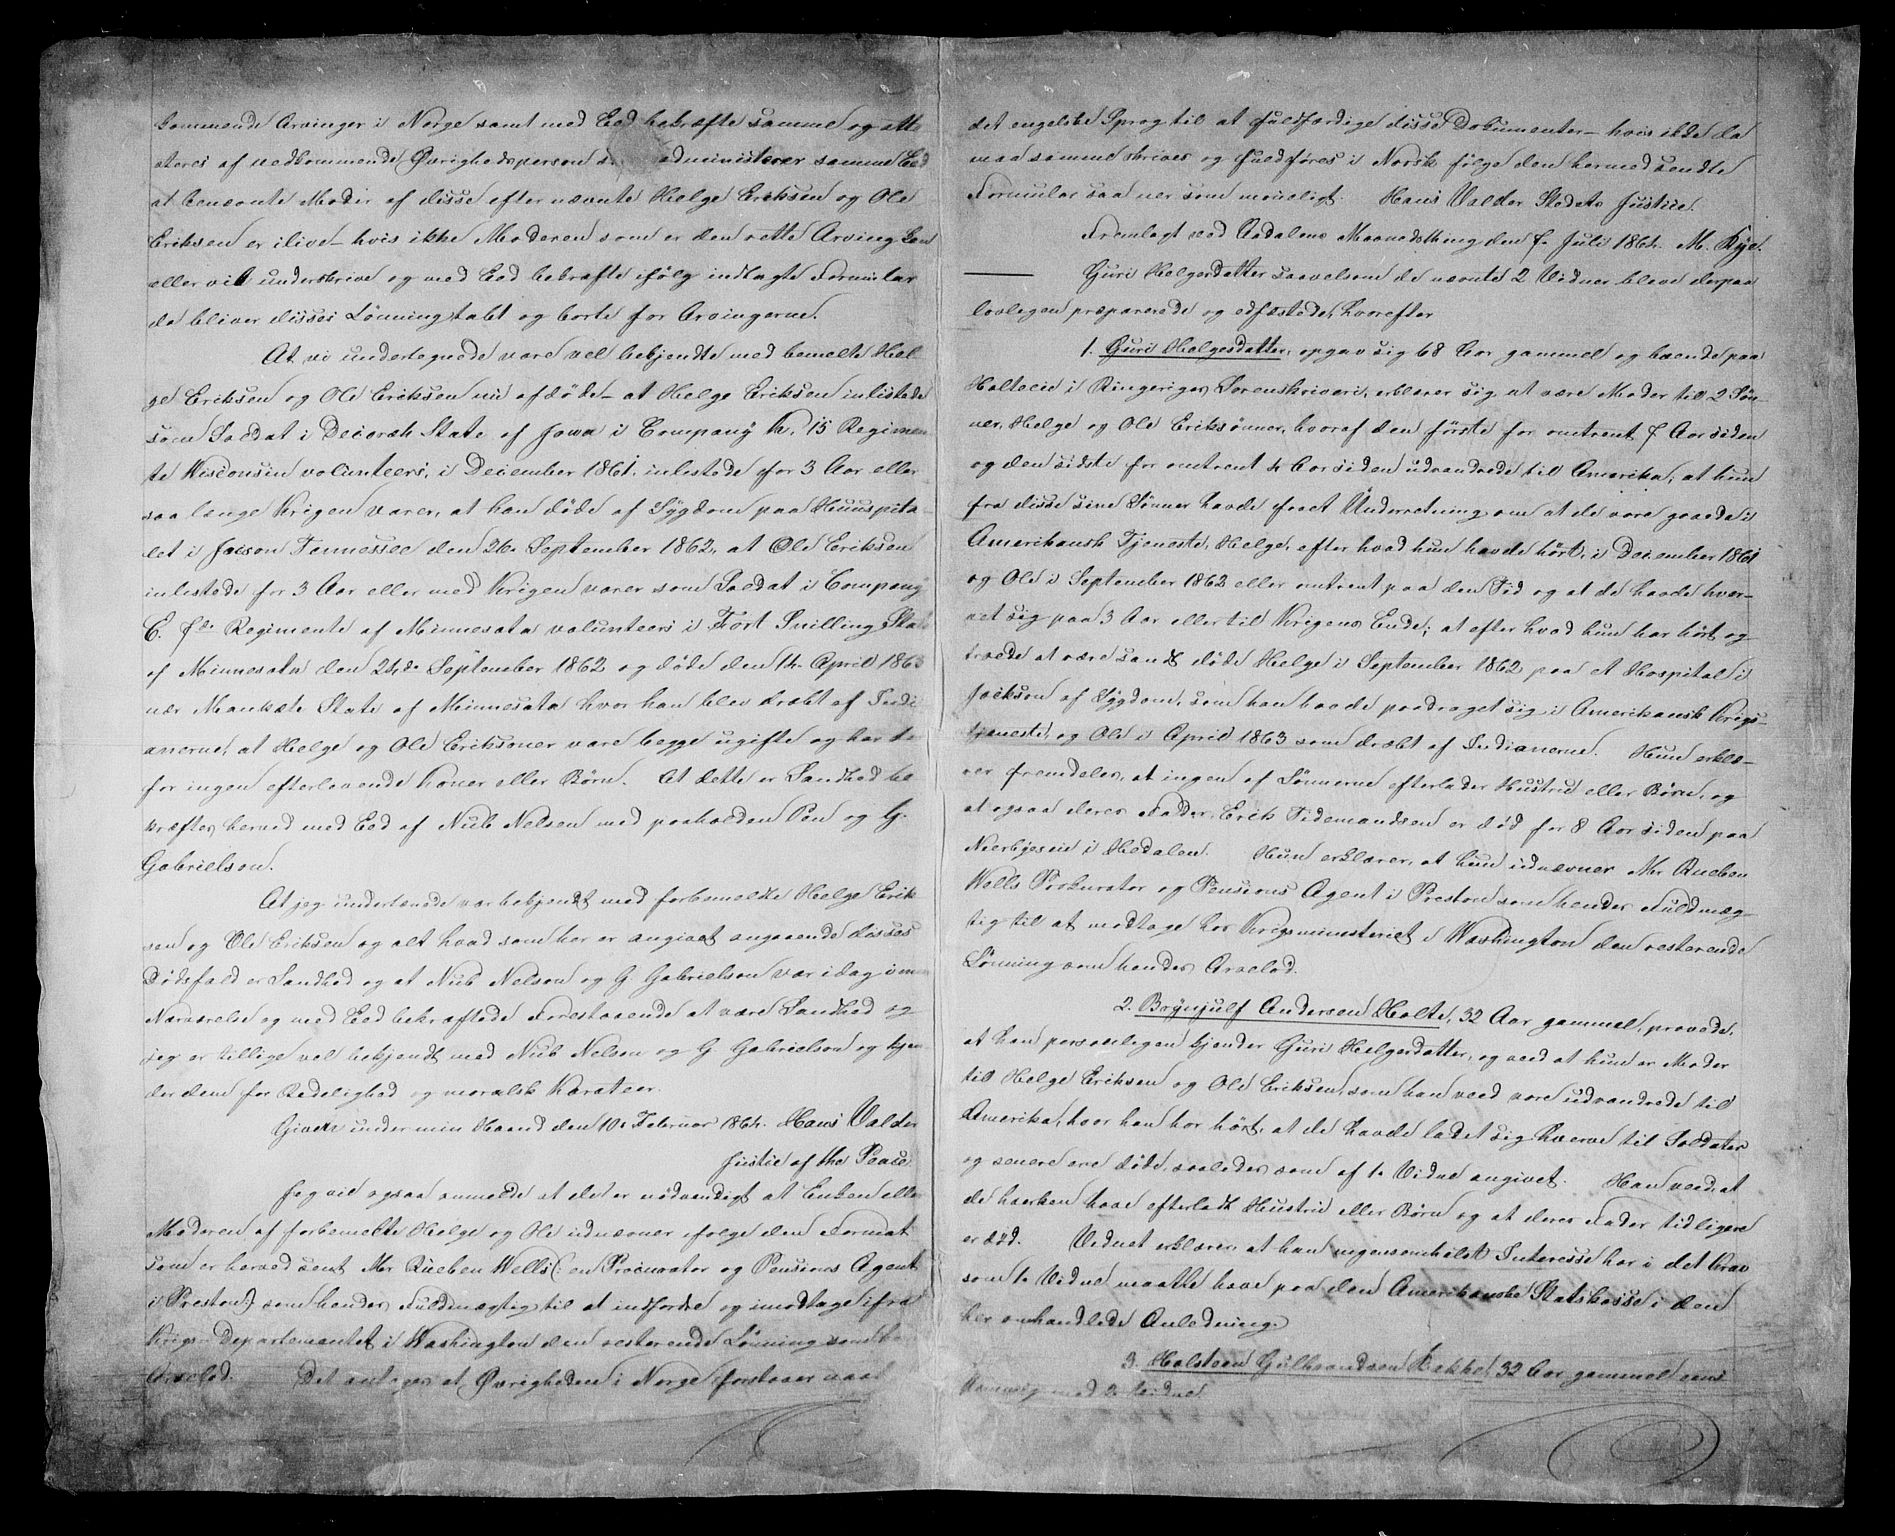 kommende Arvinger i Norge samt med Eed bekræfte samme og atte
steres af vedkommende Øvrighedsperson administerer samme Eed
at benævnte Moder af disse efter nævnte Helge Eriksen og Ole
Eriksen er ilive – hvis ikke Moderen som er den rette Arving kan
eller vil underskrive og med Eed bekræfte ifølg indlagte Formular
da bliver disses Lønning tabt og borte for Arvingerne.
At vi undertegnede vare vel bekjendte med bemelte Hel-
ge Eriksen og Ole Eriksen nu afdøde – at Helge Eriksen inlistede
som Soldat i Decorah State of Jowa i Company K. 15 Regimen
te Wisconsin volunteers, i December 1861, inlestede for 3 Aar eller
saa længe Krigen varer, at han døde af Sygdom paa Huuspita-
let i Jacson Tennessee den 26. September 1862, at Ole Eriksen
inlistede for 3 Aar eller med Krigen varer som Soldat i Company
E. 7de Regimente af Minnesata volunteers i Fort Snilling State
of Minnesata den 24de September 1862 og døde den 14. April 1863
nær Mankate State of Minnesata hvor han blev dræbt af Indi
anerne, at Helge og Ole Eriksøner vare begge ugifte og har der
for ingen efterlevende Koner eller Børn. At dette er Sandhed be
kræftes herved med Eed af Nub Nelsen med paaholden Pen og G.
Gabrielson.
At jeg undertænede var bekjendt med forbemeldte Helge Erik
sen og Ole Eriksen og alt hvad som her er angivet angaaende disses
Dødsfald er Sandhed og at Nub Nelson og G. Gabrielson var idag i min
Nærværelse og med Eed bekræftede Forestaaende at være Sandhed og
jeg er tillige vel bekjendt med Nub Nelson og G. Gabrielson og kjen
der dem for Redelighed og moralsk Karateer.
Given under min Haand den 10. Februar 1864. Hans Valder
Justie of the Peace.
Jeg vie ogsaa anmelde at det er nødvendigt at Enken eller
Moderen af forbemelte Helge og Ole udnævner ifolge den Format
som er herved sent Mr Rueben Wells (: en Procurator og Pensions Agent
i Preston:) som hendes Fuldmægtig til at indfordre og imodtage ifra
Krigs-Departementet i Washington den resterende Lønning som
Arvelod. Det antages at Øvrigheden i Norge forstaaer vaal
det engelske Sprog til at fuldfærdige disse Dokumenter – hvis ikke da
maa samme skrives og fuldføres i Norsk følge den hermed sendte
Formular saa nær som mueligt. Hans Valder Stedets Justice.
Fremlagt ved Aadalens Maanedsthing den 7. Juli 1864. M. Kye.
Guri Helgesdatter saavelsom de nævnte 2 Vidner bleve derpaa
lovlegen præparerede og edfæstede, hvorefter
1. Guri Helgesdatter, opgav sig 68 Aar gammel og boende paa
Halteeie i Ringeriges Sorenskriveri, erklærer sig at være Moder til 2 Søn-
ner, Helge og Ole Eriksønner, hvoraf den første for omtrent 7 Aar siden
og den sidste for omtrent 4 Aar siden udvandrede til Amerika; at hun
fra disse sine Sønner havde faaet Underretning om at de vare gaaede i
Amerikansk Tjeneste, Helge, efter hvad hun havde hørt, i December 1861
og Ole i September 1862 eller omtrent paa den Tid og at de havde hver-
vet sig paa 3 Aar eller til Krigens Ende; at efter hvad hun har hørt og
troede at være sandt døde Helge i September 1862 paa et Hospital i
Jackson af Sygdom, som han havde paadraget sig i Amerikansk Krigs-
tjeneste, og Ole i April 1863 som dræbt af Indianerne. Hun erklæ-
rer fremdeles, at ingen af Sønnerne efterlader Hustrue eller Børn, og
at ogsaa deres Fader, Erik Tidemandsen er død for 8 Aar siden paa
Nærbyeeie i Hedalen. Hun erklærer, at hun udnævner Mr Rueben
Wells Prokurator og Pensions Agent i Preston som hendes Fuldmæg-
tig til at modtage hos Krigsministeriet i Washington den resterende
Lønning som hendes Arvelod.
2. Brynjulf Andersen Holte, 32 Aar gammel, provede,
at han personligen kjender Guri Helgesdatter, og veed at hun er Moder
til Helge Eriksen og Ole Eriksen, som han veed vare udvandrede til
Amerika, hvor han har hørt, at de havde ladet sig hverve til Soldater
og senere ere døde, saaledes som af 1. Vidne angivet. Han veed, at
de hverken have efterladt Hustrue eller Børn og at deres Fader tidligere
er død. Vidnet erklærer at han ingensomhelst Interesse har i det Krav
som 1. Vidne maatte have paa den Amerikanske Statskasse i den
her omhandlede Anledning.
3. Halsteen Gulbrandsen Bakke, 32 Aar gammel eens
stemmig med 2. Vidne.